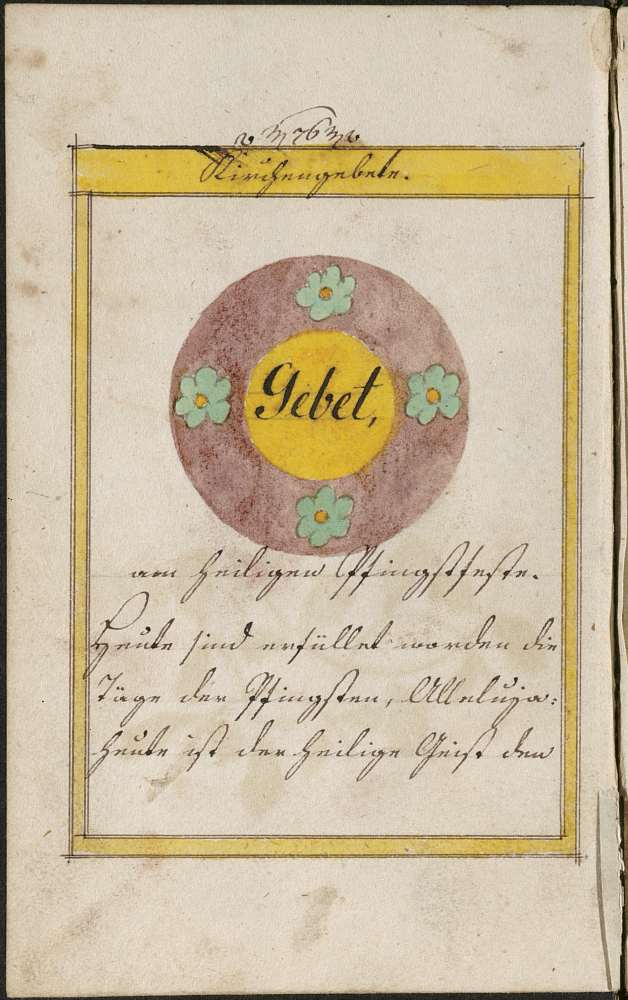 76
Kirchengebete.
Gebet,
am heiligen Pfingstfeste.
Heute sind erfüllet worden die
Täge der Pfingsten, Alleluja:
heute ist der heilige Geist den